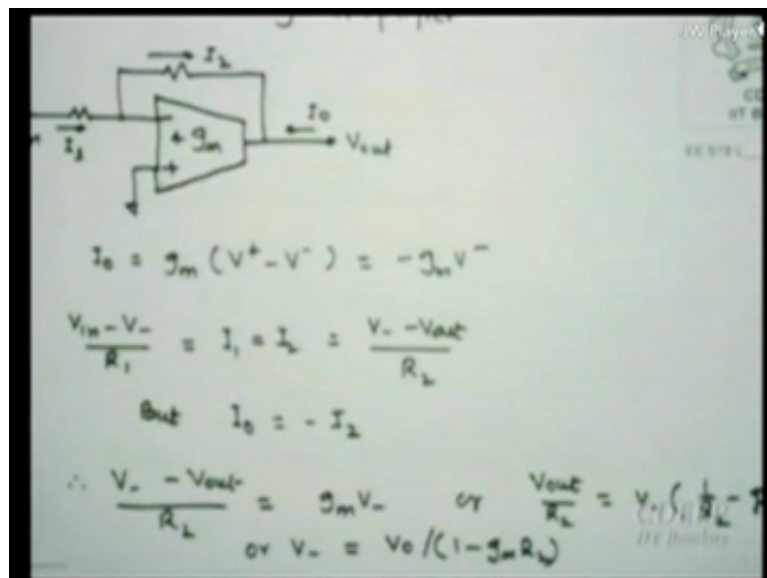 JW Player
I2
I1
gm
I0
Vout
I0 = gm (V+ - V-) = -gm V-
Vin - V- / R1 = I1 = I2 = V- - Vout / R2
But I0 = - I2
∴ V- - Vout / R2 = gm V- or Vout / R2 = V- ( 1/R2 -
or V- = V0 / (1 - gm R2)
CDEEP
IIT Bombay